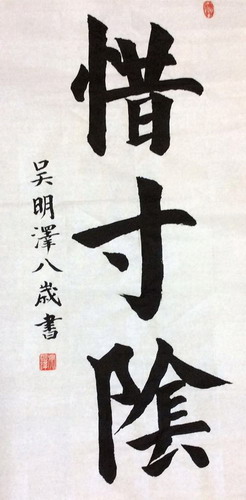 惜寸陰
吳明澤八歲書